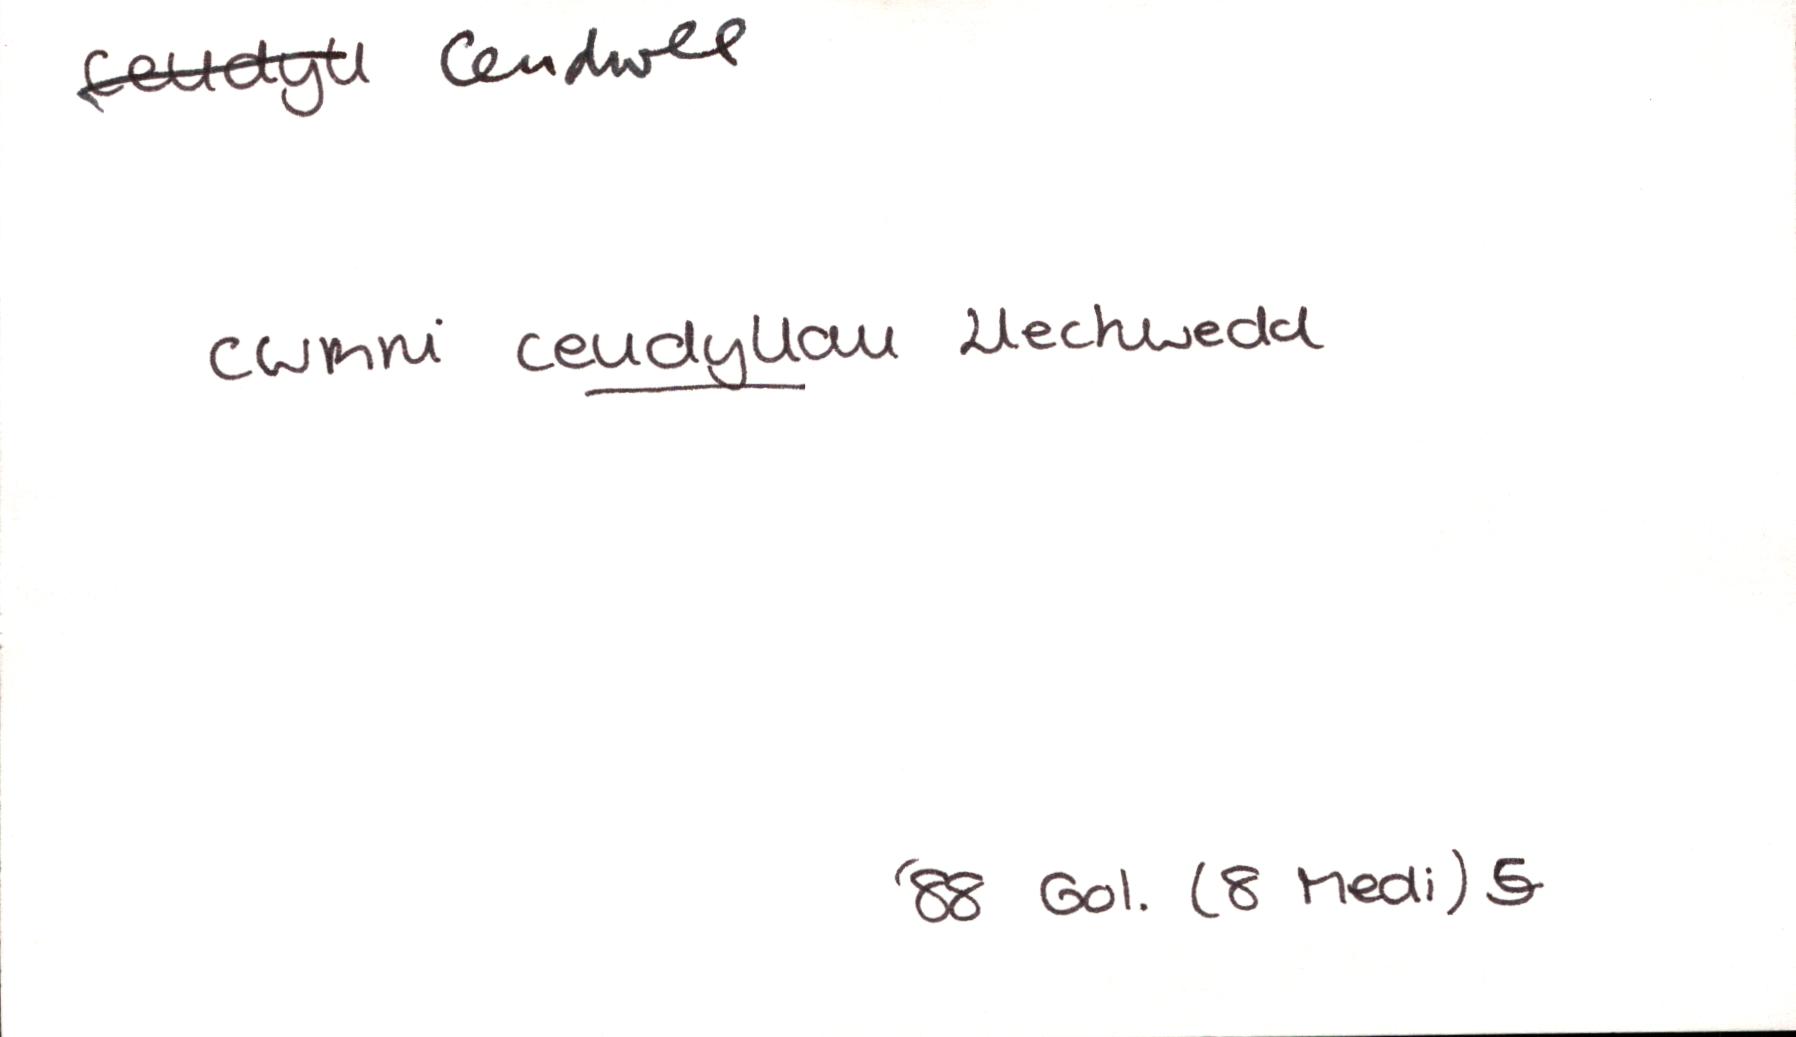 ceudyll ceudwll
cwmni ceudyllau Llechwedd
'88 Gol. (8 Medi) 5